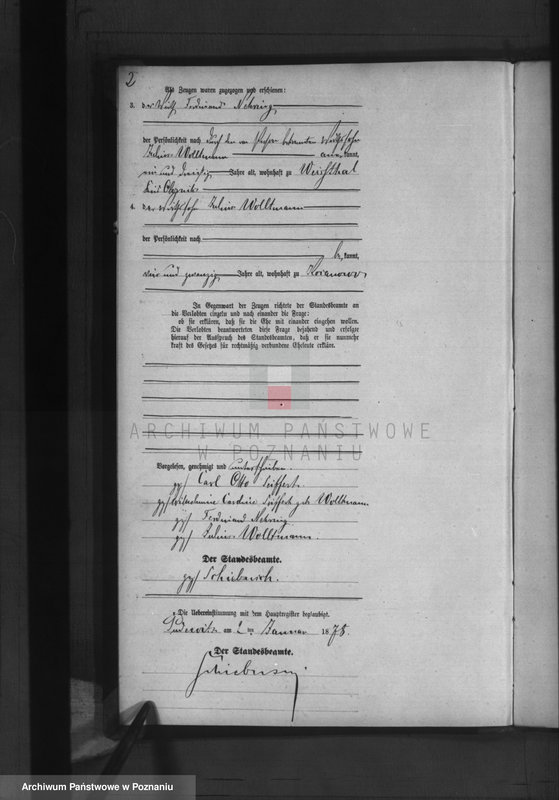 2
Als Zeugen waren zugezogen und erschienen:
3. der Wirth Ferdinand Nehring
der Persönlichkeit nach durch den bekannten Wirthssohn
Julius Wolltmann anerkannt,
ein und dreißig Jahre alt, wohnhaft zu Weißthal
4. der Wirthssohn Julius Wolltmann
der Persönlichkeit nach
be kannt,
vier und zwanzig Jahre alt, wohnhaft zu
In Gegenwart der Zeugen richtete der Standesbeamte an
die Verlobten einzeln und nach einander die Frage:
ob sie erklären, daß sie die Ehe mit einander eingehen wollen.
Die Verlobten beantworteten diese Frage bejahend und erfolgte
hierauf der Ausspruch des Standesbeamten, daß er sie nunmehr
kraft des Gesetzes für rechtmäßig verbundene Eheleute erkläre.
ARCHIWUM PAŃSTWOWE
W POZNANIU
Vorgelesen, genehmigt und unterschrieben.
gez. Carl Otto Seiffert.
gez. Wilhelmine Caroline Seiffert geb. Wolltmann.
gez. Ferdinand Nehring
gez. Julius Wolltmann.
Der Standesbeamte.
gez.
Die Uebereinstimmung mit dem Hauptregister beglaubigt.
am 2 ten Januar 1878.
Der Standesbeamte.
Archiwum Państwowe w Poznaniu